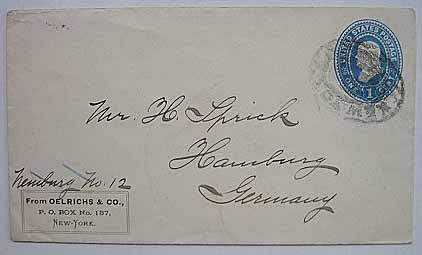 UNITED STATES POSTAGE
1
Mr. H. Sprick
Hamburg
Germany
Newburg No. 12
From OELRICHS & CO.,
P. O. BOX No. 197,
NEW-YORK.